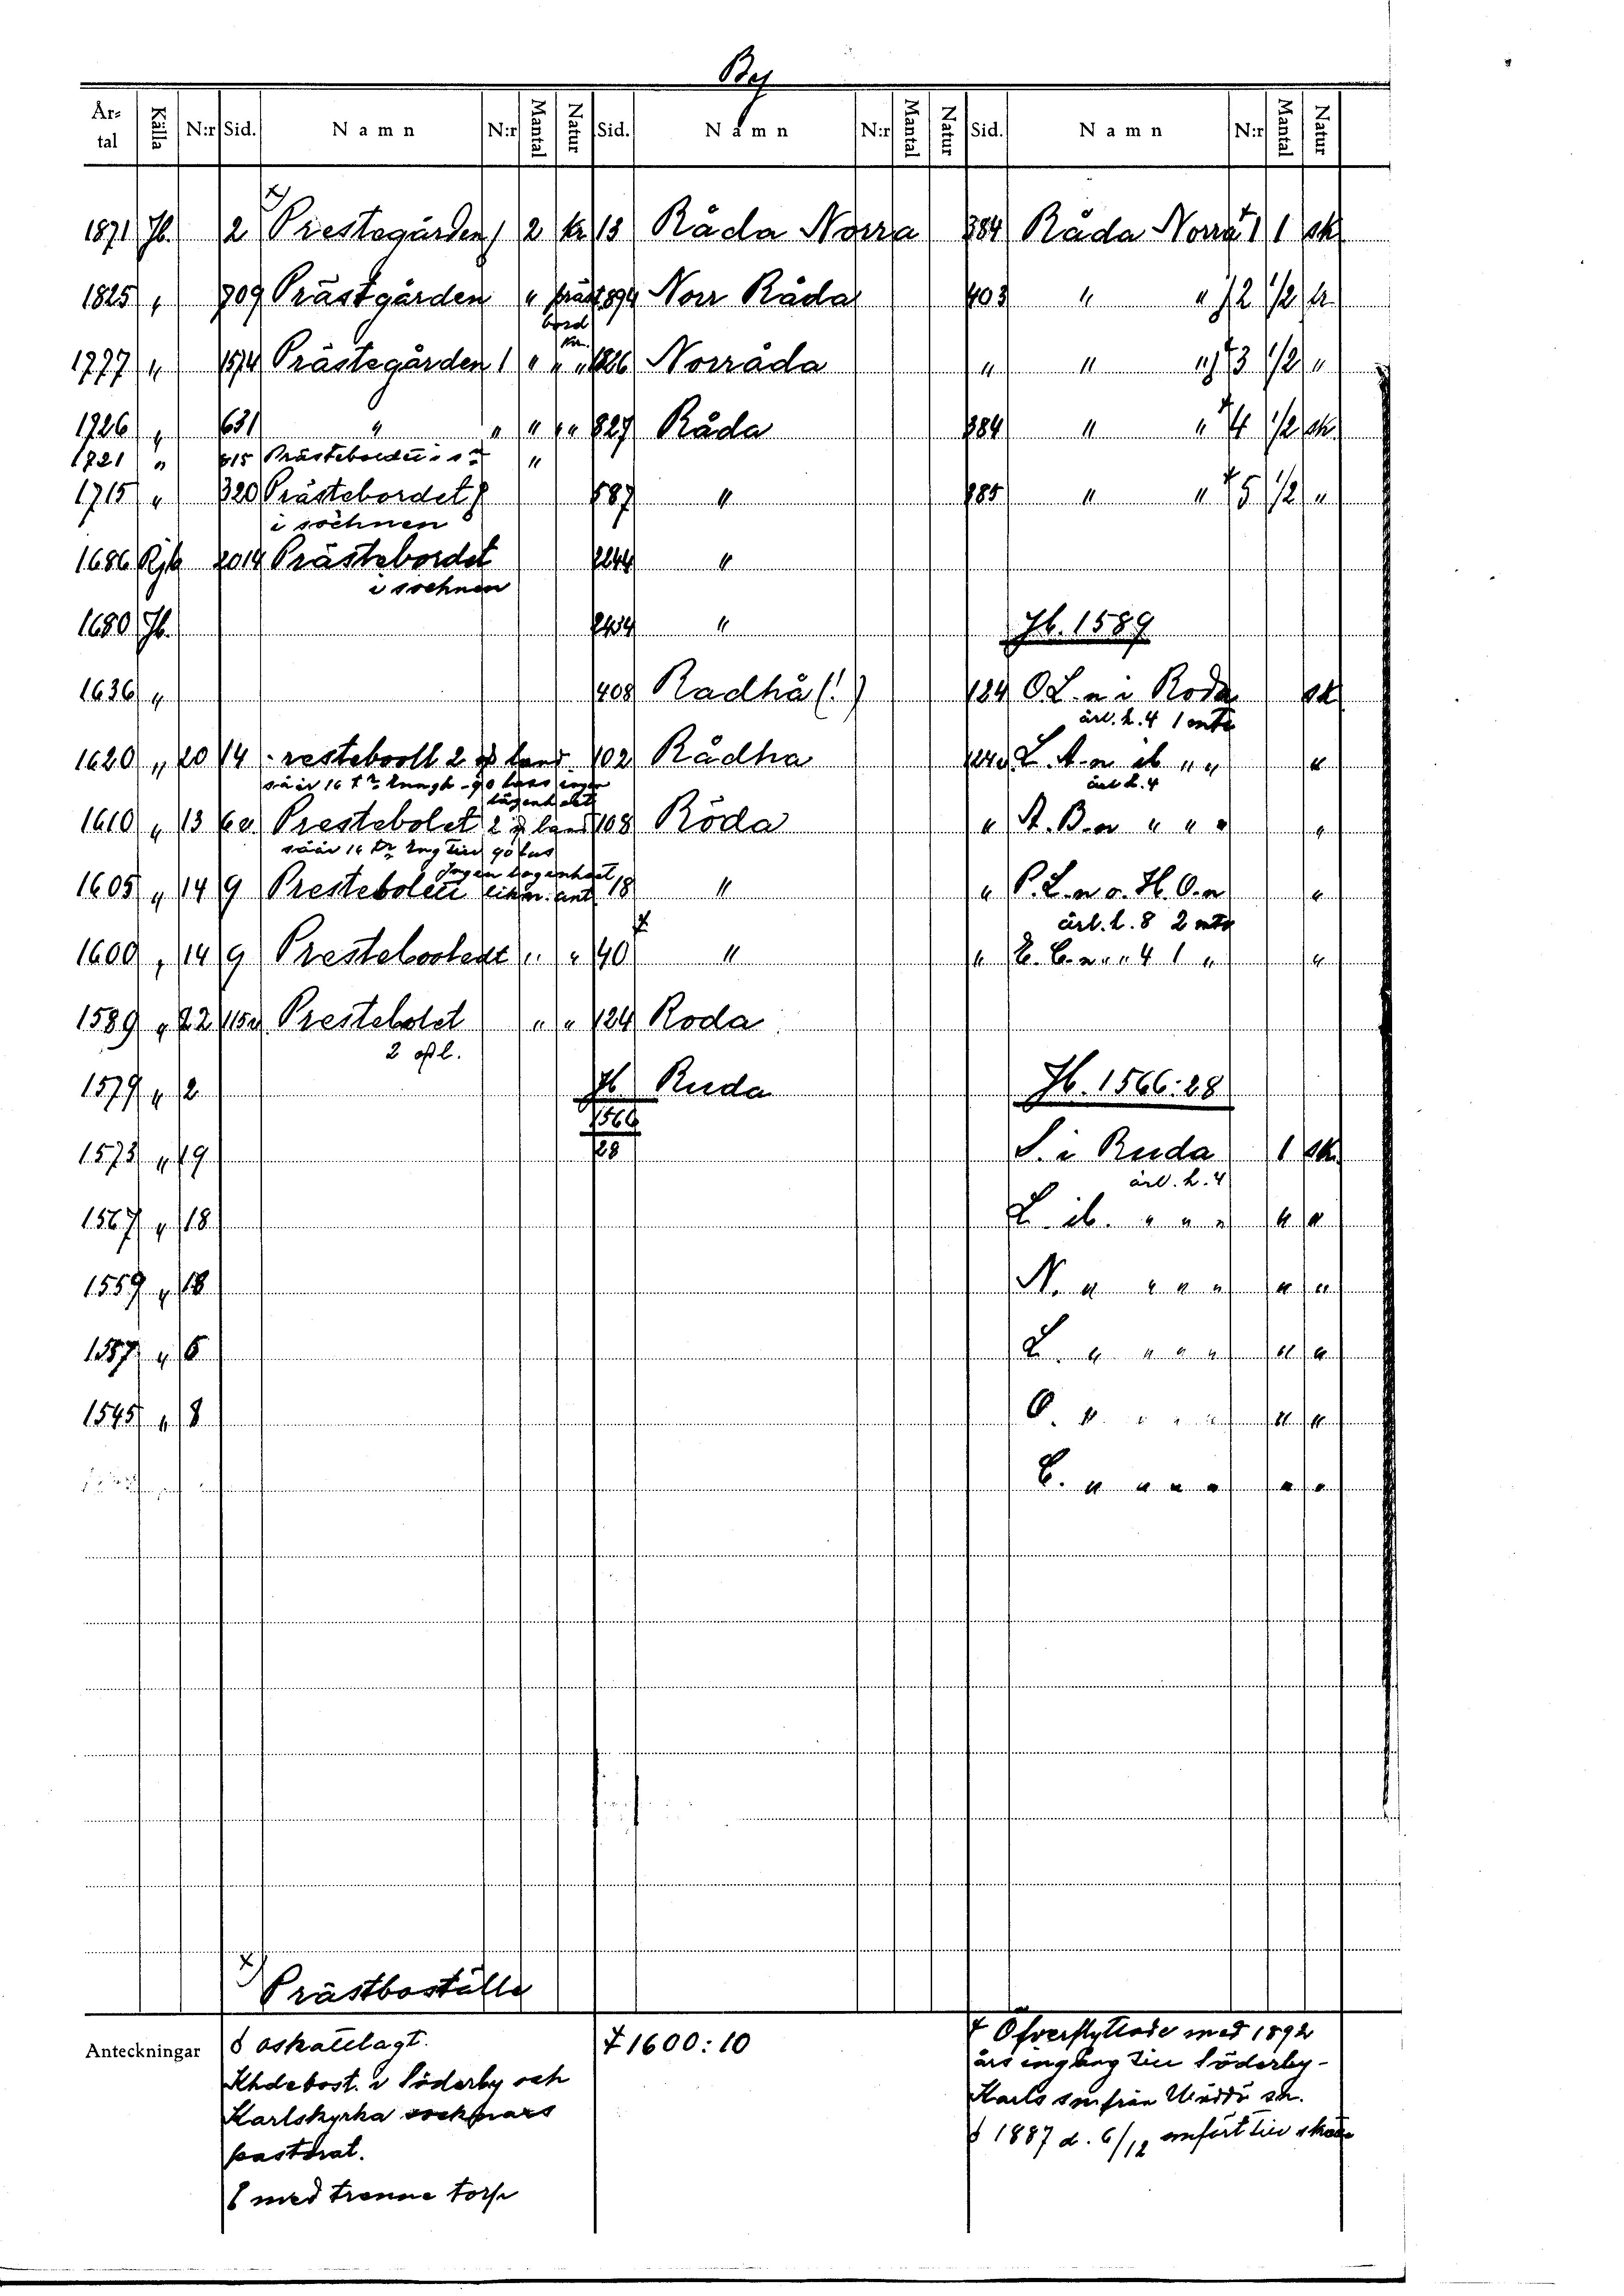 By
År-tal Källa N:r Sid. Namn N:r Mantal Natur Sid. Namn N:r Mantal Natur Sid. Namn N:r Mantal Natur
1871 Jb. 2 Prestegården 1 2 kr 13 Råda Norra 384 Råda Norra 1 1 sk
1825 " 709 Prästgården " präst 894 Norr Råda 403 " " 2 1/2 kr
bord
kr.
1777 " 1574 Prästegården 1 " " " 1826 Norråda " " " 3 1/2 "
1726 " 631 " " " " " 827 Råda 884 " " 4 1/2 sk
1721 " 615 Prästebordet i sn "
1715 " 320 Prästebordet 587 " 885 " " 5 1/2 "
i sochnen
1686 Rjb 2014 Prästebordet 2244 "
i sochnen
1680 Jb. 2454 " Jb. 1589
1636 " 408 Radhå (!) 124 O L. n i Roda sk
ärl. h. 4 1 mtr
1620 " 20 14 restebooll 2 land 102 Rådha 124 L. A. n ib " " "
lägenhet
1610 " 13 Prestebolet 2 land 108 Röda " A. B. n " " " "
Ingen lägenheet
1605 " 14 9 Prestebolett 18 " " P. L. n o. H. O. n "
ärl. h. 8 2 mtr
1600 " 14 9 " " 40 " " E. E. n " " 4 1 " "
1589 " 22 Prestebolet " " 124 Roda
2 l.
1579 " 2 Jb Ruda Jb. 1566:28
1566
1573 " 19 28 S. i Ruda 1 sk
ärl. h. 4
1567 " 18 L. ib. " " " " "
1559 " 18 N. " " " " " "
1557 " 6 L. " " " " " "
1545 " 8 O. " " " " " "
E. " " " " " "
x) Prästboställe
Anteckningar
oskattlagt.
Khdebost. i Söderby och
Karlskyrka socknars
pastorat.
med trenne torp
1600:10
Öfverflyttade med 1892
års ingång till Söderby-
Karls sn från Väddö sn.
1887 d. 6/12 omfört till skatte